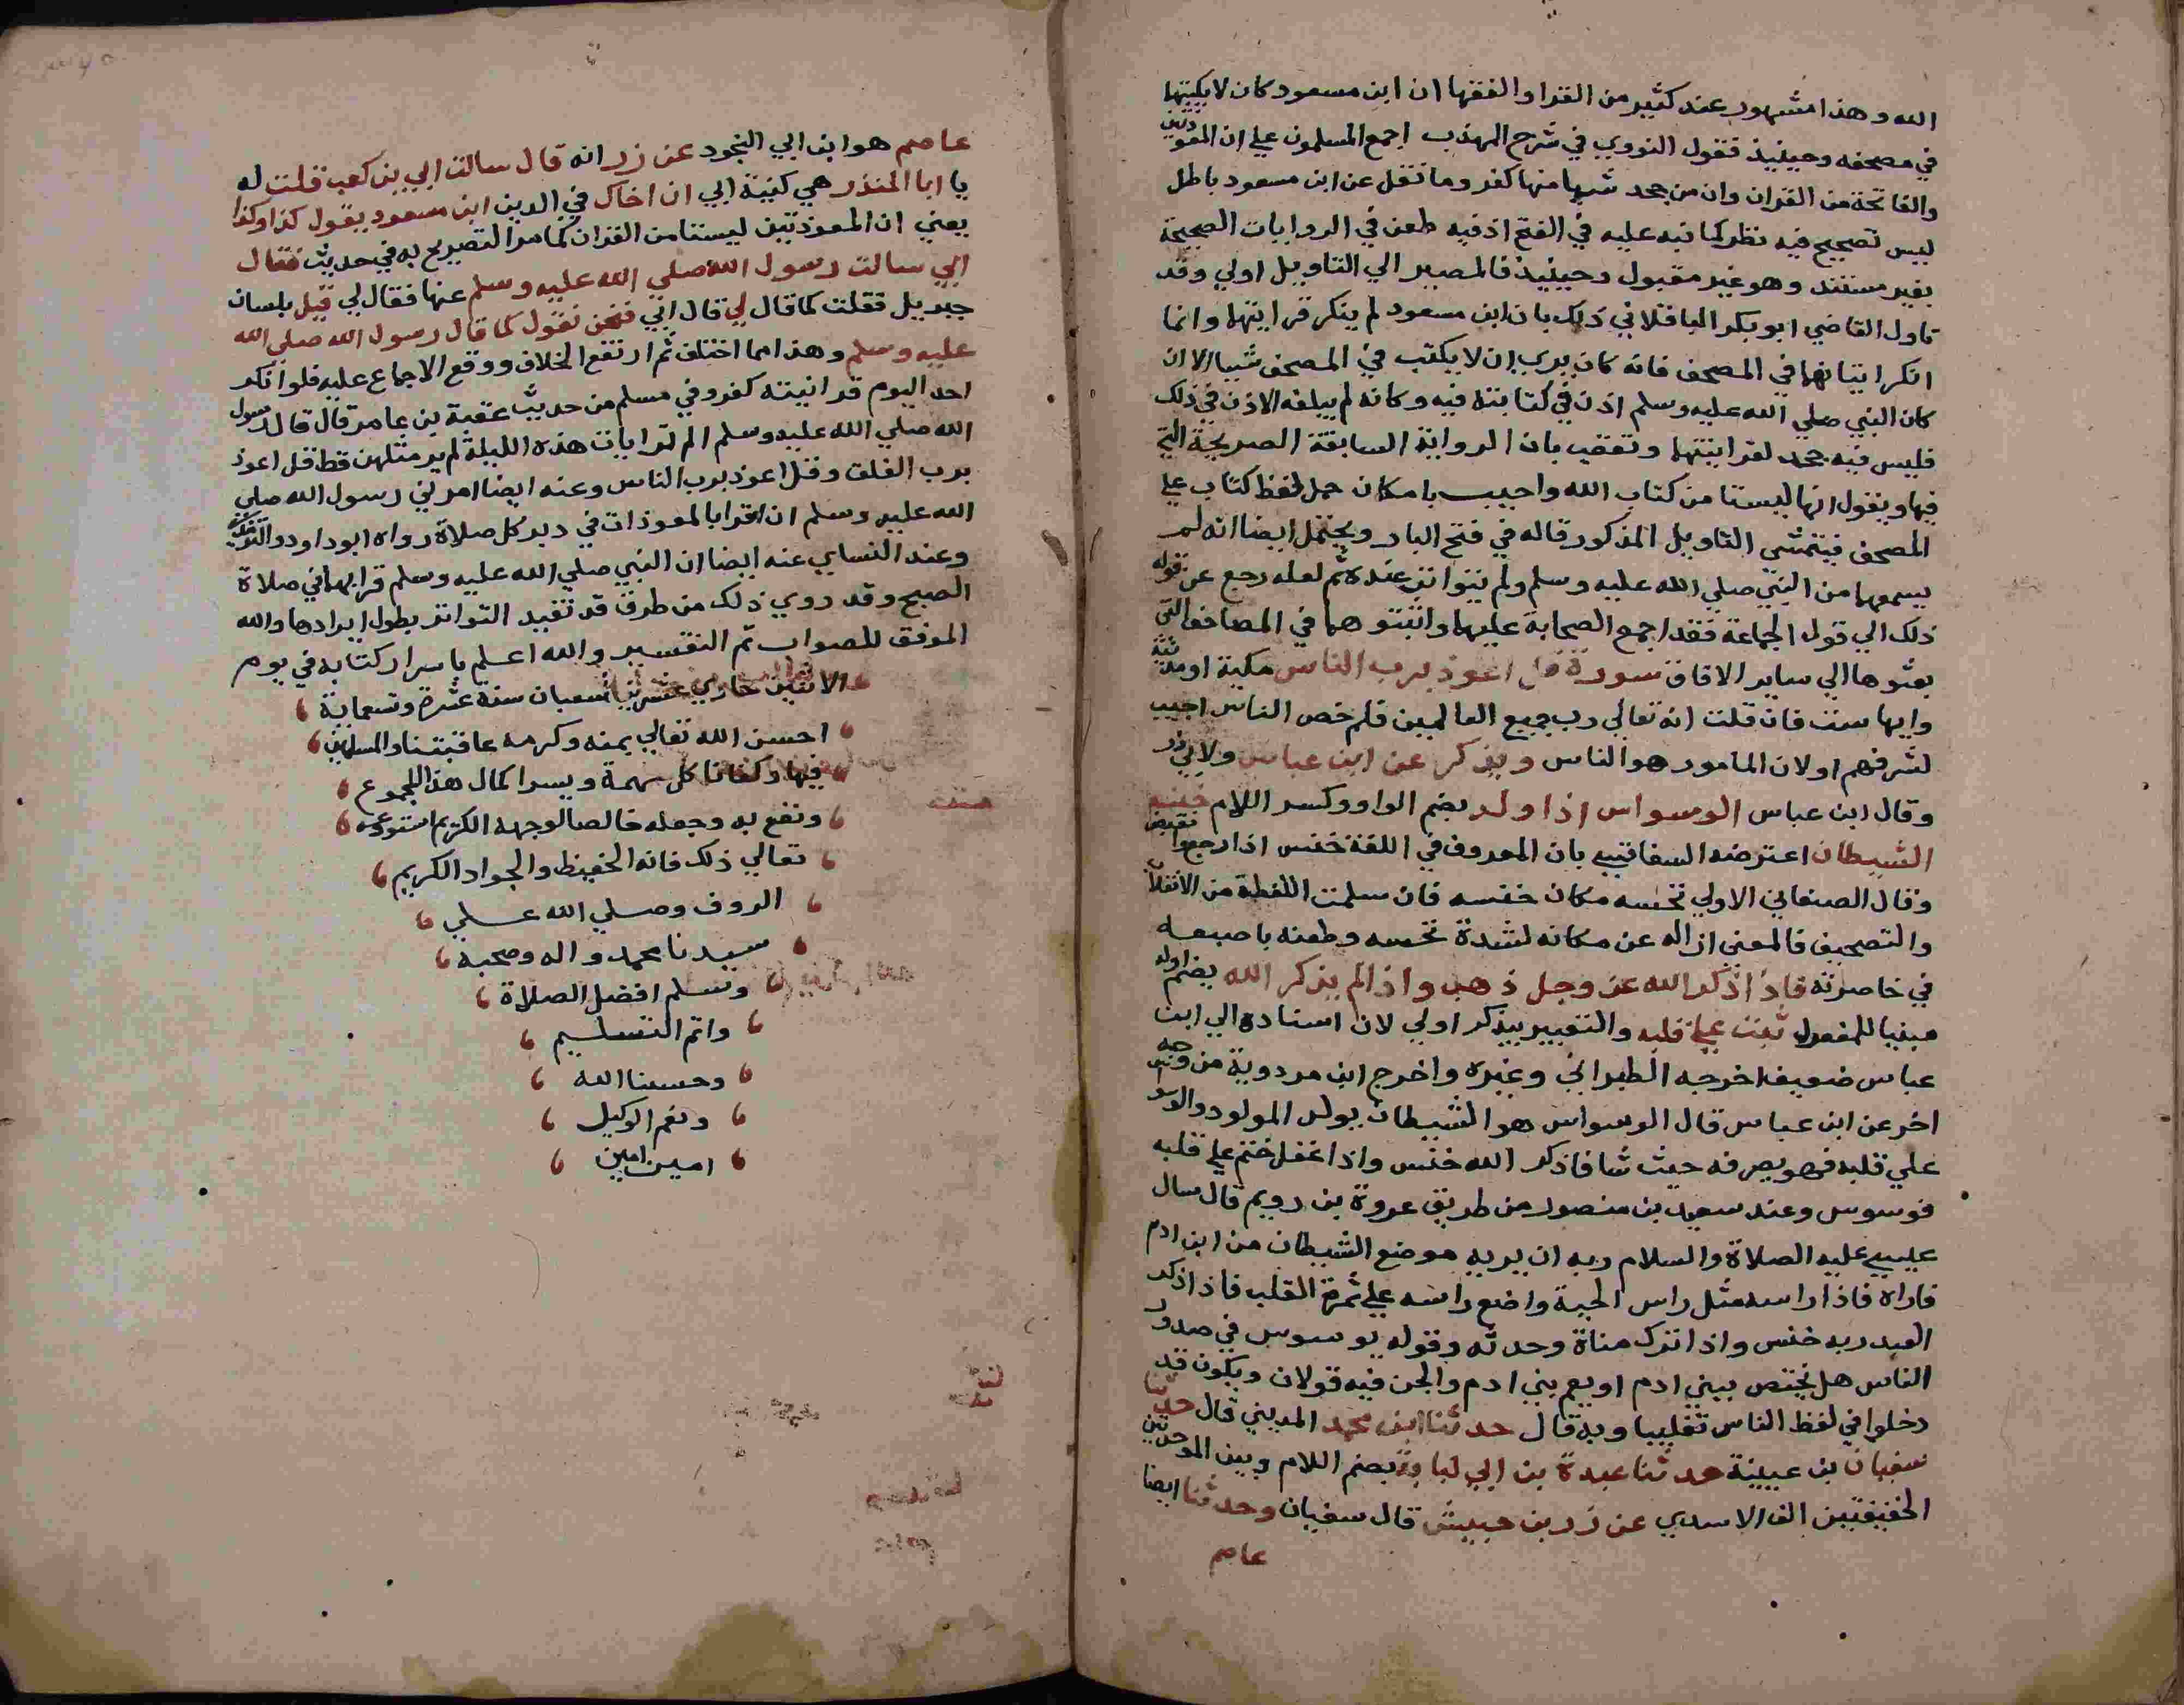 الله وهذا مشهور عند كثير من القرا والفقها ان ابن مسعود كان لا يكتبها
في مصحفه وحينيذ فقول النووي في شرح المهذب اجمع المسلمون علي ان المعوذتين
والفاتحة من القران وان من جحد شيا منها كفر وما نقل عن ابن مسعود باطل
ليس تصحيح فيه نظر كما نبه عليه في الفتح اذ فيه طعن في الروايات الصحيحة
بغير مستند وهو غير مقبول وحينيذ فالمصير الي التاويل اولي وقد
تاول القاضي ابو بكر الباقلاني ذلك بان ابن مسعود لم ينكر قرانيتهما وانما
انكر اثباتهما في المصحف فانه كان يري ان لا يكتب في المصحف شيا الا ان
كان النبي صلي الله عليه وسلم اذن في كتابته فيه وكانه لم يبلغه الاذن في ذلك
فليس فيه جحد لقرانيتهما وتعقب بان الرواية السابقة الصريحة التي
فيها ويقول انها ليستا من كتاب الله واجيب بامكان حمل لفظ كتاب علي
المصحف فيتمشي التاويل المذكور قاله في فتح البار ويحتمل ايضا انه لم
يسمعهما من النبي صلي الله عليه وسلم ولم تتواتر عنده ثم لعله رجع عن قوله
ذلك الي قول الجماعة فقد اجمع الصحابة عليهما واثبتوهما في المصاحف التي
بعثوها الي ساير الافاق سورة قل اعوذ برب الناس مكية او مدنية
وايها ست فان قلت انه تعالي رب جميع العالمين فلم خص الناس اجيب
لشرفهم او لان المامور هو الناس ويذكر عن ابن عباس ولابي ذر
وقال ابن عباس الوسواس اذا ولد بضم الواو وكسر اللام خنسه
الشيطان اعترضه السفاقسي بان المعروف في اللغة خنس اذا رجع وانقبض
وقال الصغاني الاولي نخسه مكان خنسه فان سلمت اللفظة من الانقلاب
والتصحيف فالمعني ازاله عن مكانه لشدة نخسه وطعنه باصبعه
في خاصرته فاذا ذكر الله عز وجل ذهب واذا لم يذكر الله بضم اوله
مبنيا للمفعول ثبت علي قلبه والتعبير بيذكر اولي لان اسناده الي ابن
عباس ضعيف اخرجه الطبراني وغيره واخرج ابن مردوية من وجه
اخر عن ابن عباس قال الوسواس هو الشيطان يولد المولود والوسواس
علي قلبه فهو يصرفه حيث شا فاذكر الله خنس واذا غفل ختم علي قلبه
فوسوس وعند سعيد بن منصور من طريق عروة بن رويم قال سال
عيسي عليه الصلاة والسلام ربه ان يريه موضع الشيطان من ابن ادم
فاراه فاذا راسه مثل راس الحية واضع راسه علي ثمرة القلب فاذا ذكر
العبد ربه خنس واذا ترك مناة وحدثه وقوله يوسوس في صدور
الناس هل يختص ببني ادم او يعم بني ادم والجن فيه قولان ويكون قد
دخلوا في لفظ الناس تغليبا وبه قال حدثنا ابن محمد المديني قال حدثنا
سفيان بن عيينة حدثنا عبدة بن ابي لبابة بضم اللام وبين الموحدتين
الخفيفتين الف الاسدي عن زر بن حبيش قال سفيان وحدثنا ايضا
عاصم
عاصم هو ابن ابي النجود عن زر انه قال سالت ابي بن كعب قلت له
يا ابا المنذر هي كنية ابي ان اخاك في الدين ابن مسعود يقول كذا وكذا
يعني ان المعوذتين ليستا من القران كما مر التصريح به في حديث فقال
ابي سالت رسول الله صلي الله عليه وسلم عنها فقال لي قيل بلسان
جبريل فقلت كما قال لي قال ابي فنحن نقول كما قال رسول الله صلي الله
عليه وسلم وهذا مما اختلف ثم ارتفع الخلاف ووقع الاجماع عليه فلو انكر
احد اليوم قرانيته كفر وفي مسلم من حديث عقبة بن عامر قال قال رسول
الله صلي الله عليه وسلم الم تر ايات هذه الليلة لم ير مثلهن قط قل اعوذ
برب الفلق وقل اعوذ برب الناس وعنه ايضا امرني رسول الله صلي
الله عليه وسلم ان اقرا بالمعوذات في دبر كل صلاة رواه ابو داود والترمذي
وعند النساي عنه ايضا ان النبي صلي الله عليه وسلم قرا بهما في صلاة
الصبح وقد روي ذلك من طرق قد تفيد التواتر يطول ايرادها والله
الموفق للصواب تم التفسير والله اعلم باسرار كتابه في يوم
الاثنين حادي عشرين شعبان سنة عشرة وتسعماية
احسن الله تعالي بمنه وكرمه عاقبتنا والمسلمين
فيها وكفانا كل مهمة ويسر اكمال هذا المجموع
ونفع به وجعله خالصا لوجهه الكريم استودعه
تعالي ذلك فانه الحفيظ والجواد الكريم
الروف وصلي الله علي
سيدنا محمد واله وصحبه
وسلم افضل الصلاة
واتم التسليم
وحسبنا الله
ونعم الوكيل
امين امين